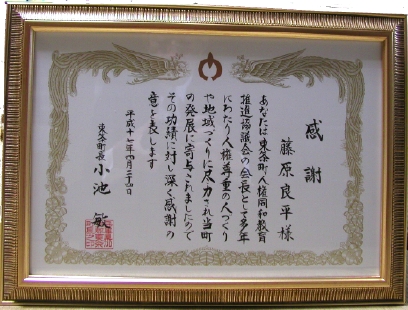 感謝
藤原良平様
あなたは東条町人権同和教育
推進協議会の会長として多年
にわたり人権尊重の人づくり
や地域づくりに尽力され当町
の発展に寄与されましたので
その功績に対し深く感謝の
意を表します
平成十一年四月二十四日
東条町長 小池 敏